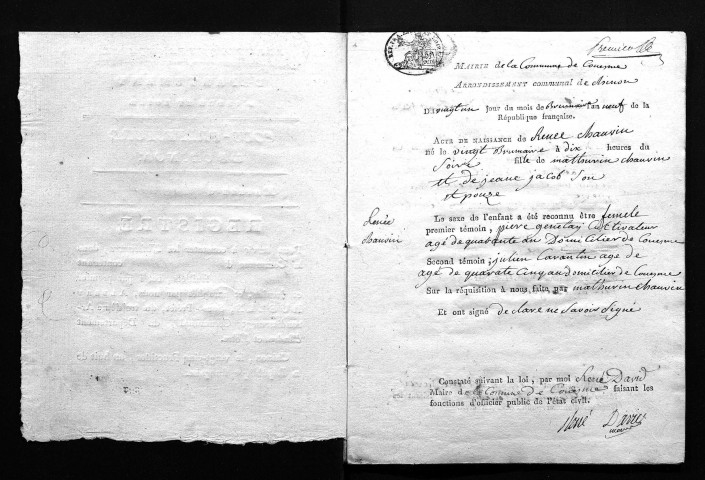 Premier
MAIRIE de la Commune de Couesme
ARRONDISSEMENT communal de Chinon
Du vingt un jour du mois de Brumaire l'an neuf de la
République française.
ACTE DE NAISSANCE de Renee chauvin
né le vingt Brumaire à dix heures du
Soire fille de mathurin chauvin
et de jeane jacob Son
et pouze
Renée
chauvin
Le sexe de l'enfant a été reconnu être femele
premier témoin, piere genetay Cultivateur
agé de quabante an Domicilier de Couesme
Second témoin; julien Carantin age de
agé de quarate Cinq an domicilier de Couesme
Sur la réquisition à nous faite par mathurin chauvin
Et ont signé declare ne Savoir Signé
Constaté suivant la loi, par moi René David
Maire de la Commune de Couesme faisant les
fonctions d'officier public de l'état civil.
René David
maire